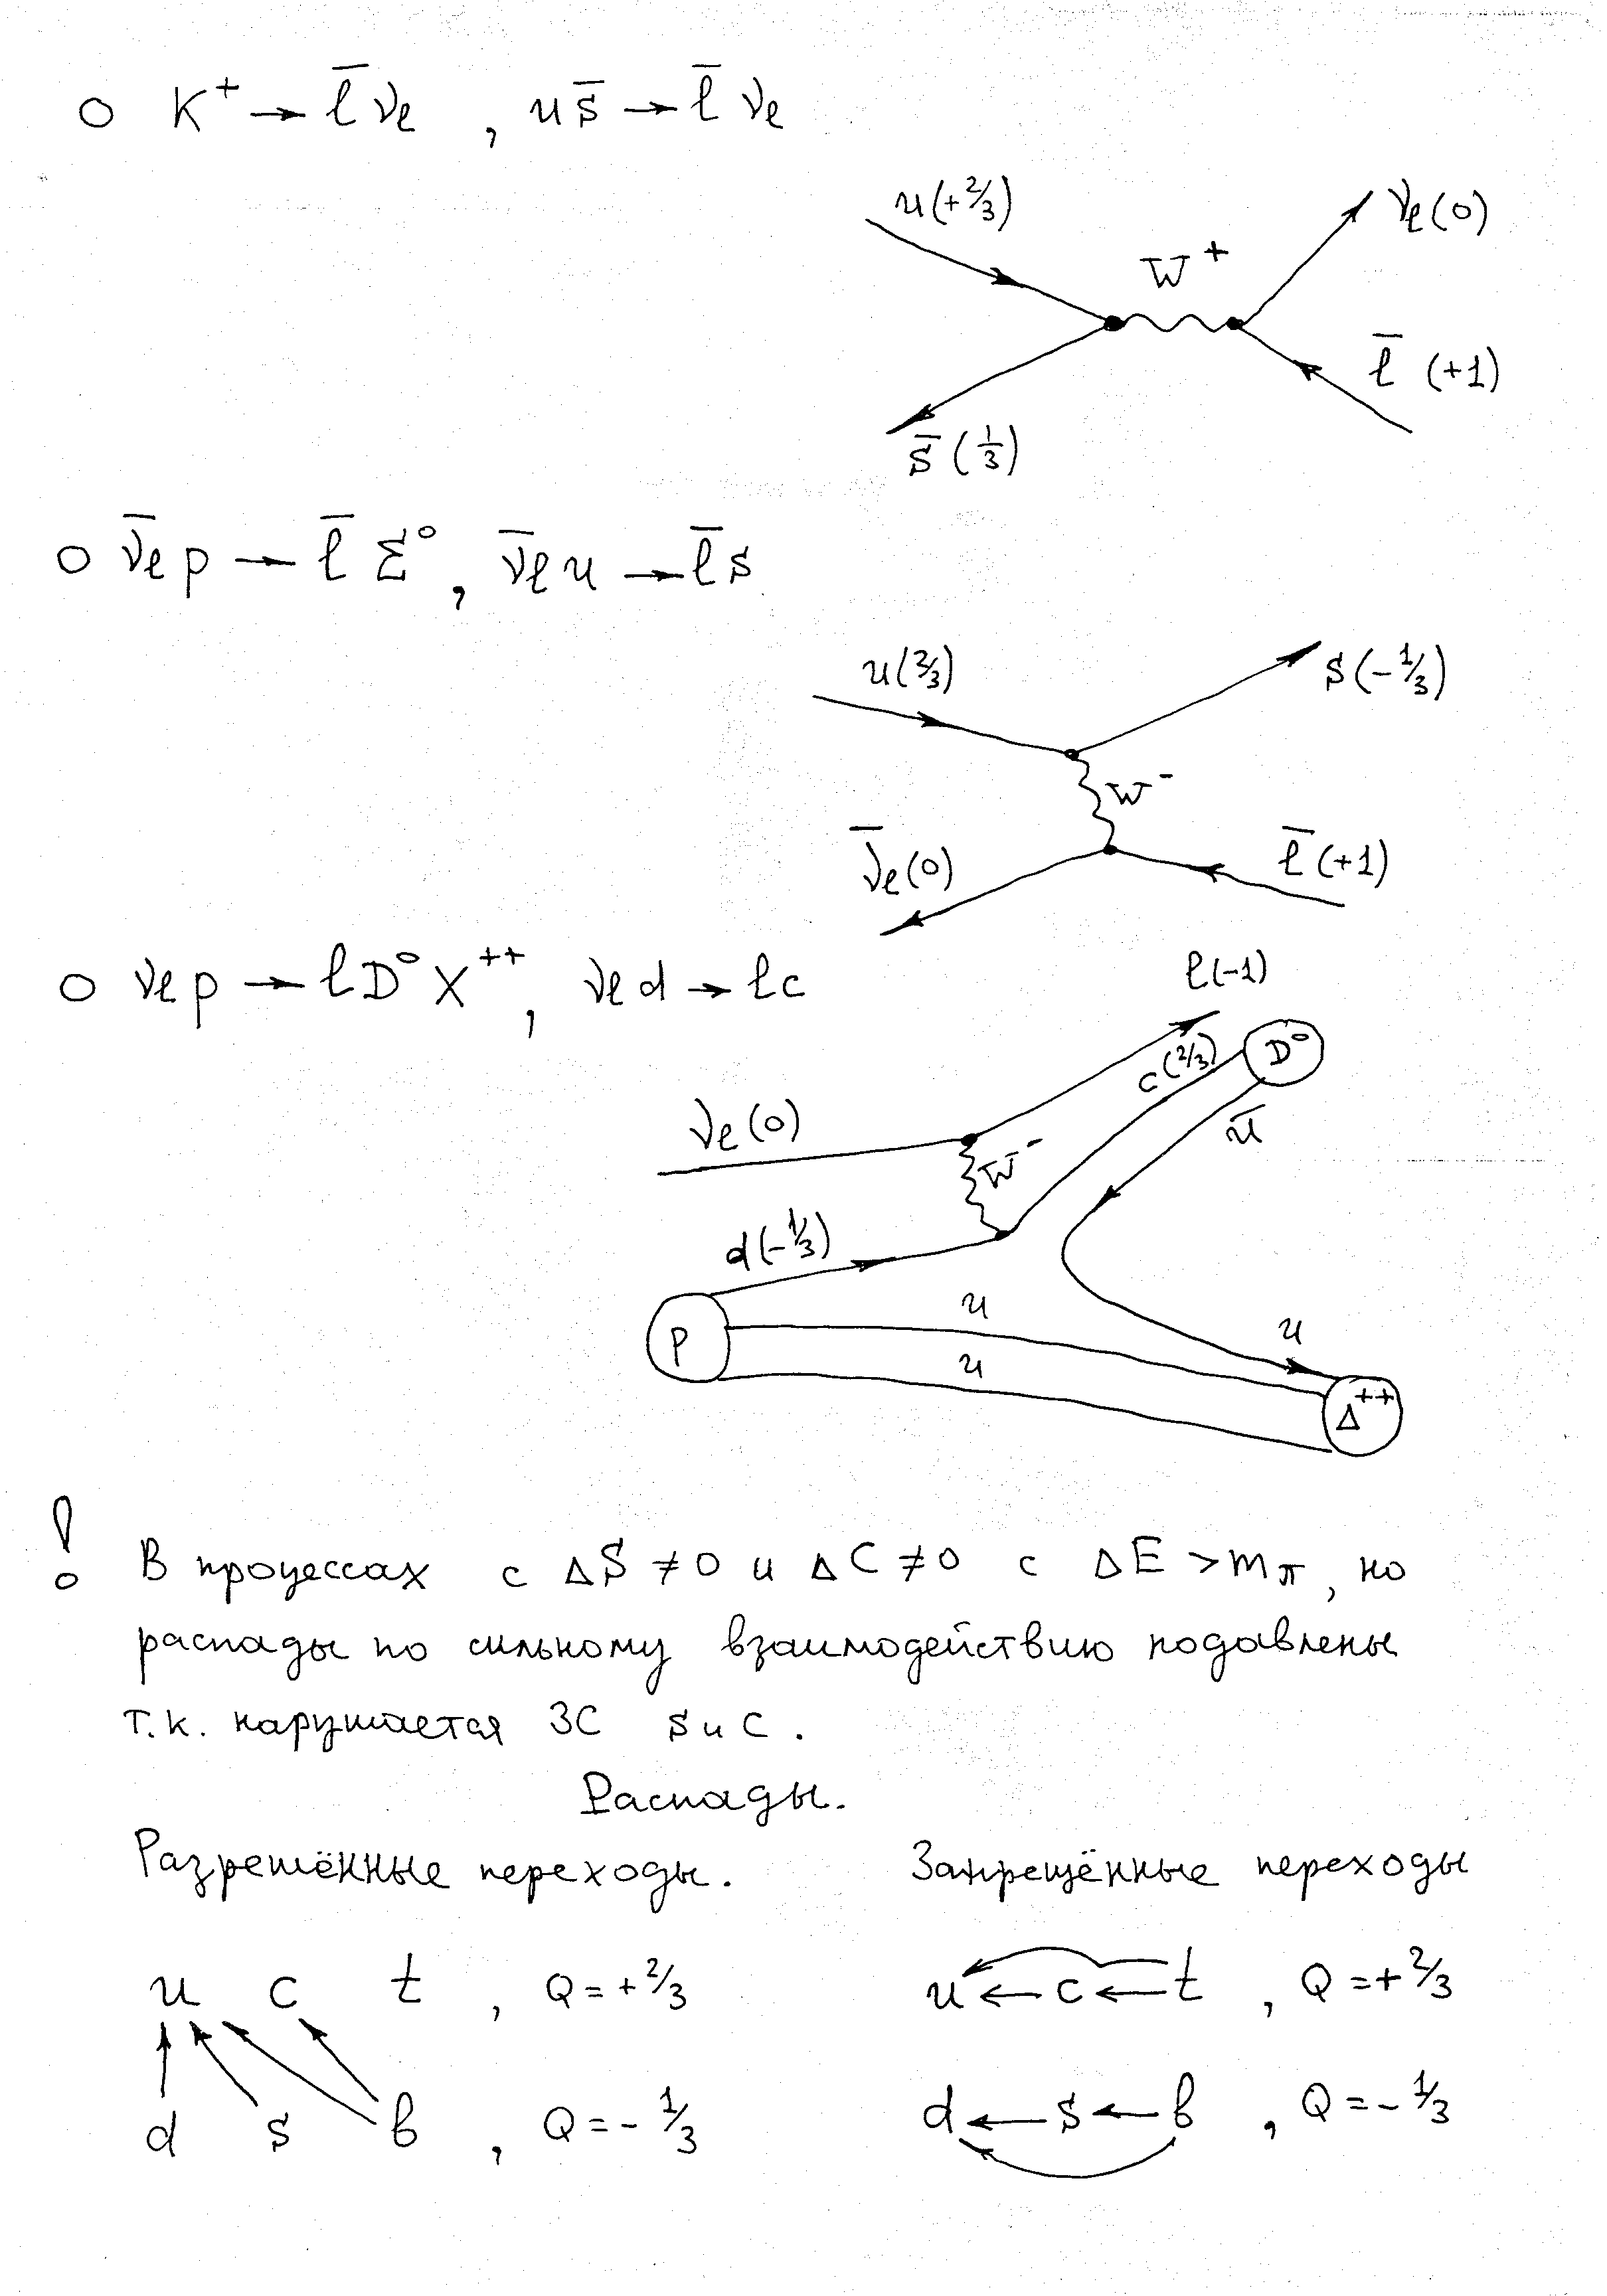 ○ K⁺ → l̄ νₗ , u s̄ → l̄ νₗ
u(+2/3)
νₗ(0)
W⁺
l̄ (+1)
s̄ (1/3)
○ ν̄ₗ p → l̄ Σ⁰, ν̄ₗ u → l̄ s
u(2/3)
s(-1/3)
W⁻
ν̄ₗ(0)
l̄ (+1)
○ νₗ p → l D⁰ X⁺⁺, νₗ d → l c
l(-1)
c(2/3)
D⁰
νₗ(0)
ū
W⁻
d(-1/3)
u
u
P
u
Δ⁺⁺
! В процессах с ΔS ≠ 0 и ΔC ≠ 0 с ΔE > m_π, но
распады по сильному взаимодействию подавлены
т.к. нарушается ЗС s и c.
Распады.
Разрешённые переходы. Запрещённые переходы
u c t , Q = +2/3
d s b , Q = - 1/3
u ← c ← t , Q = + 2/3
d ← s ← b , Q = - 1/3